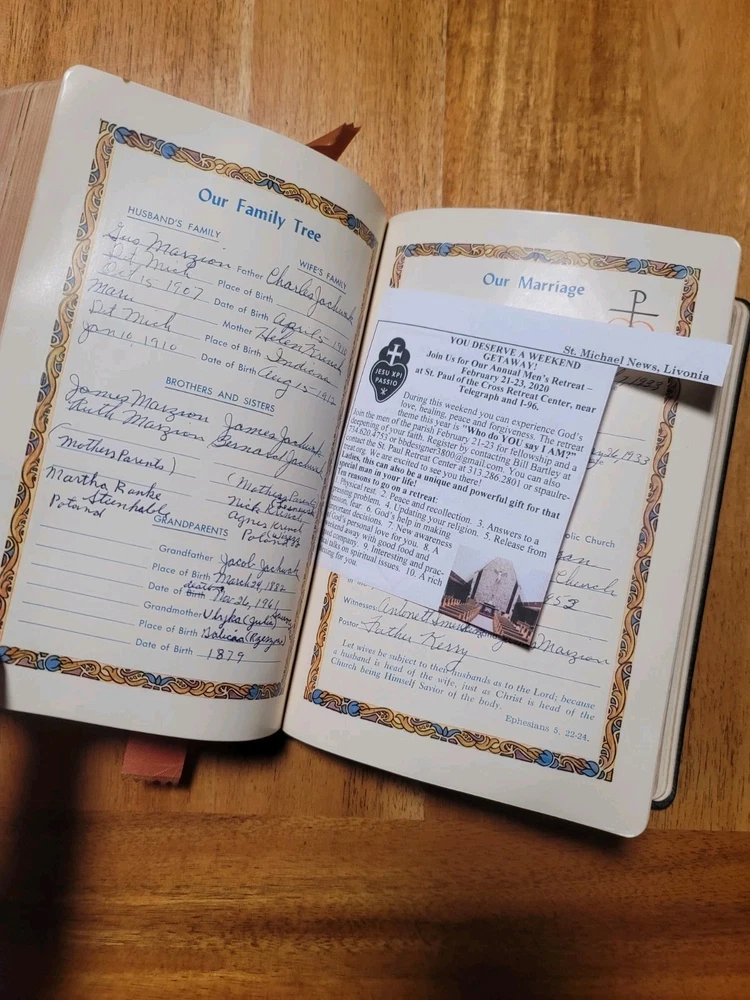 Our Family Tree
HUSBAND'S FAMILY
WIFE'S FAMILY
Gus Marzion Father Charles
Det Mich Place of Birth
Oct 15 - 1907 Date of Birth April 5-
Mary Mother Helen
Det Mich Place of Birth Indiana
Jan 10 1910 Date of Birth Aug 15-
BROTHERS AND SISTERS
James Marzion James
Ruth Marzion
(Mothers Parents) (Mothers Parents
Martha Ranke Nick
Agnes
Poland
GRANDPARENTS
Grandfather Jacob
Place of Birth March 29, 1882
Date of Birth death Nov 26, 1961
Grandmother
Place of Birth
Date of Birth 1879
Our Marriage
St. Michael News, Livonia
YOU DESERVE A WEEKEND
GETAWAY!
Join Us for Our Annual Men's Retreat –
February 21-23, 2020
at St. Paul of the Cross Retreat Center, near
Telegraph and I-96.
JESU XPI
PASSIO
During this weekend you can experience God's
love, healing, peace and forgiveness. The retreat
theme this year is "Who do YOU say I AM?"
Join the men of the parish February 21-23 for fellowship and a
deepening of your faith. Register by contacting Bill Bartley at
734.620.4753 or bbdesigner3800@gmail.com. You can also
contact the St. Paul Retreat Center at 313.286.2801 or stpaulre-
treat.org. We are excited to see you there!
Ladies, this can also be a unique and powerful gift for that
special man in your life!
reasons to go on a retreat:
Physical rest. 2. Peace and recollection. 3. Answers to a
pressing problem. 4. Updating your religion. 5. Release from
fear. 6. God's help in making
important decisions. 7. New awareness
God's personal love for you. 8. A
weekend away with good food and
good company. 9. Interesting and prac-
talks on spiritual issues. 10. A rich
for you.
1933
olic Church
Church
Witnesses: Marzion
Pastor Father Kerry
Let wives be subject to their husbands as to the Lord; because
a husband is head of the wife, just as Christ is head of the
Church being Himself Savior of the body.
Ephesians 5, 22-24.